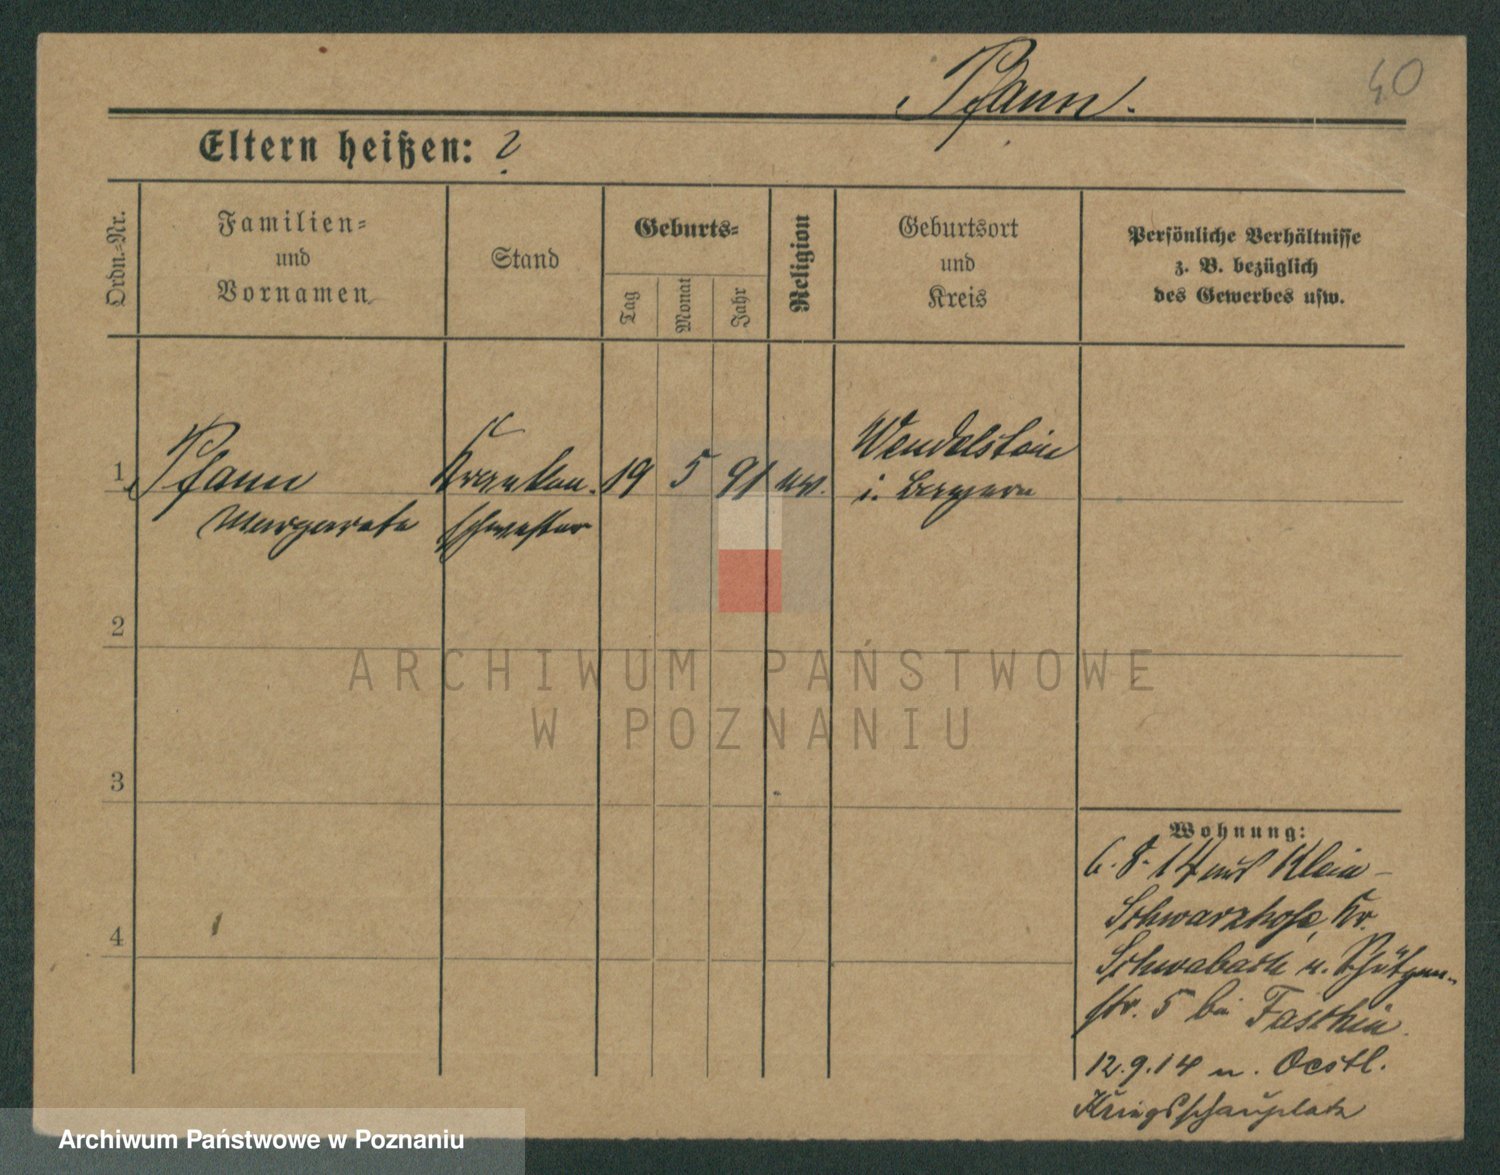 Pfann.
40
Eltern heißen: ?
Ordn.-Nr.
Familien-
und
Vornamen
Stand
Geburts-
Tag
Monat
Jahr
Religion
Geburtsort
und
Kreis
Persönliche Verhältnisse
z. B. bezüglich
des Gewerbes usw.
1
Pfann
Margarete
Kranken-
schwester
19
5
91
ev.
Wendelstein
i. Bayern
2
3
4
Wohnung:
6. 8. 14 aus Klein-
Schwarzhofe, Kr.
Schwabach n. Schützen-
str. 5 bei
12.9.14 n. Oestl.
Kriegsschauplatz
ARCHIWUM PAŃSTWOWE
W POZNANIU
Archiwum Państwowe w Poznaniu